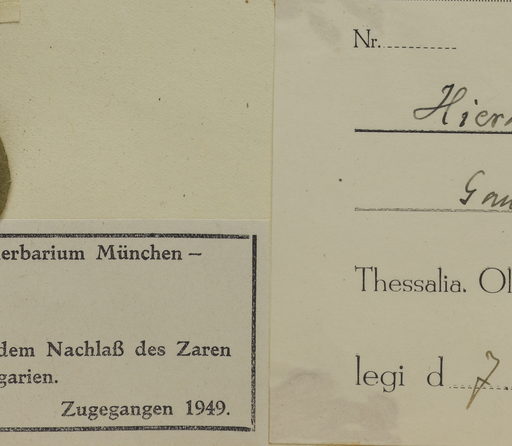 erbarium München –
dem Nachlaß des Zaren
garien.
Zugegangen 1949.
Nr.
Hier
Thessalia. Ol
legi d 7